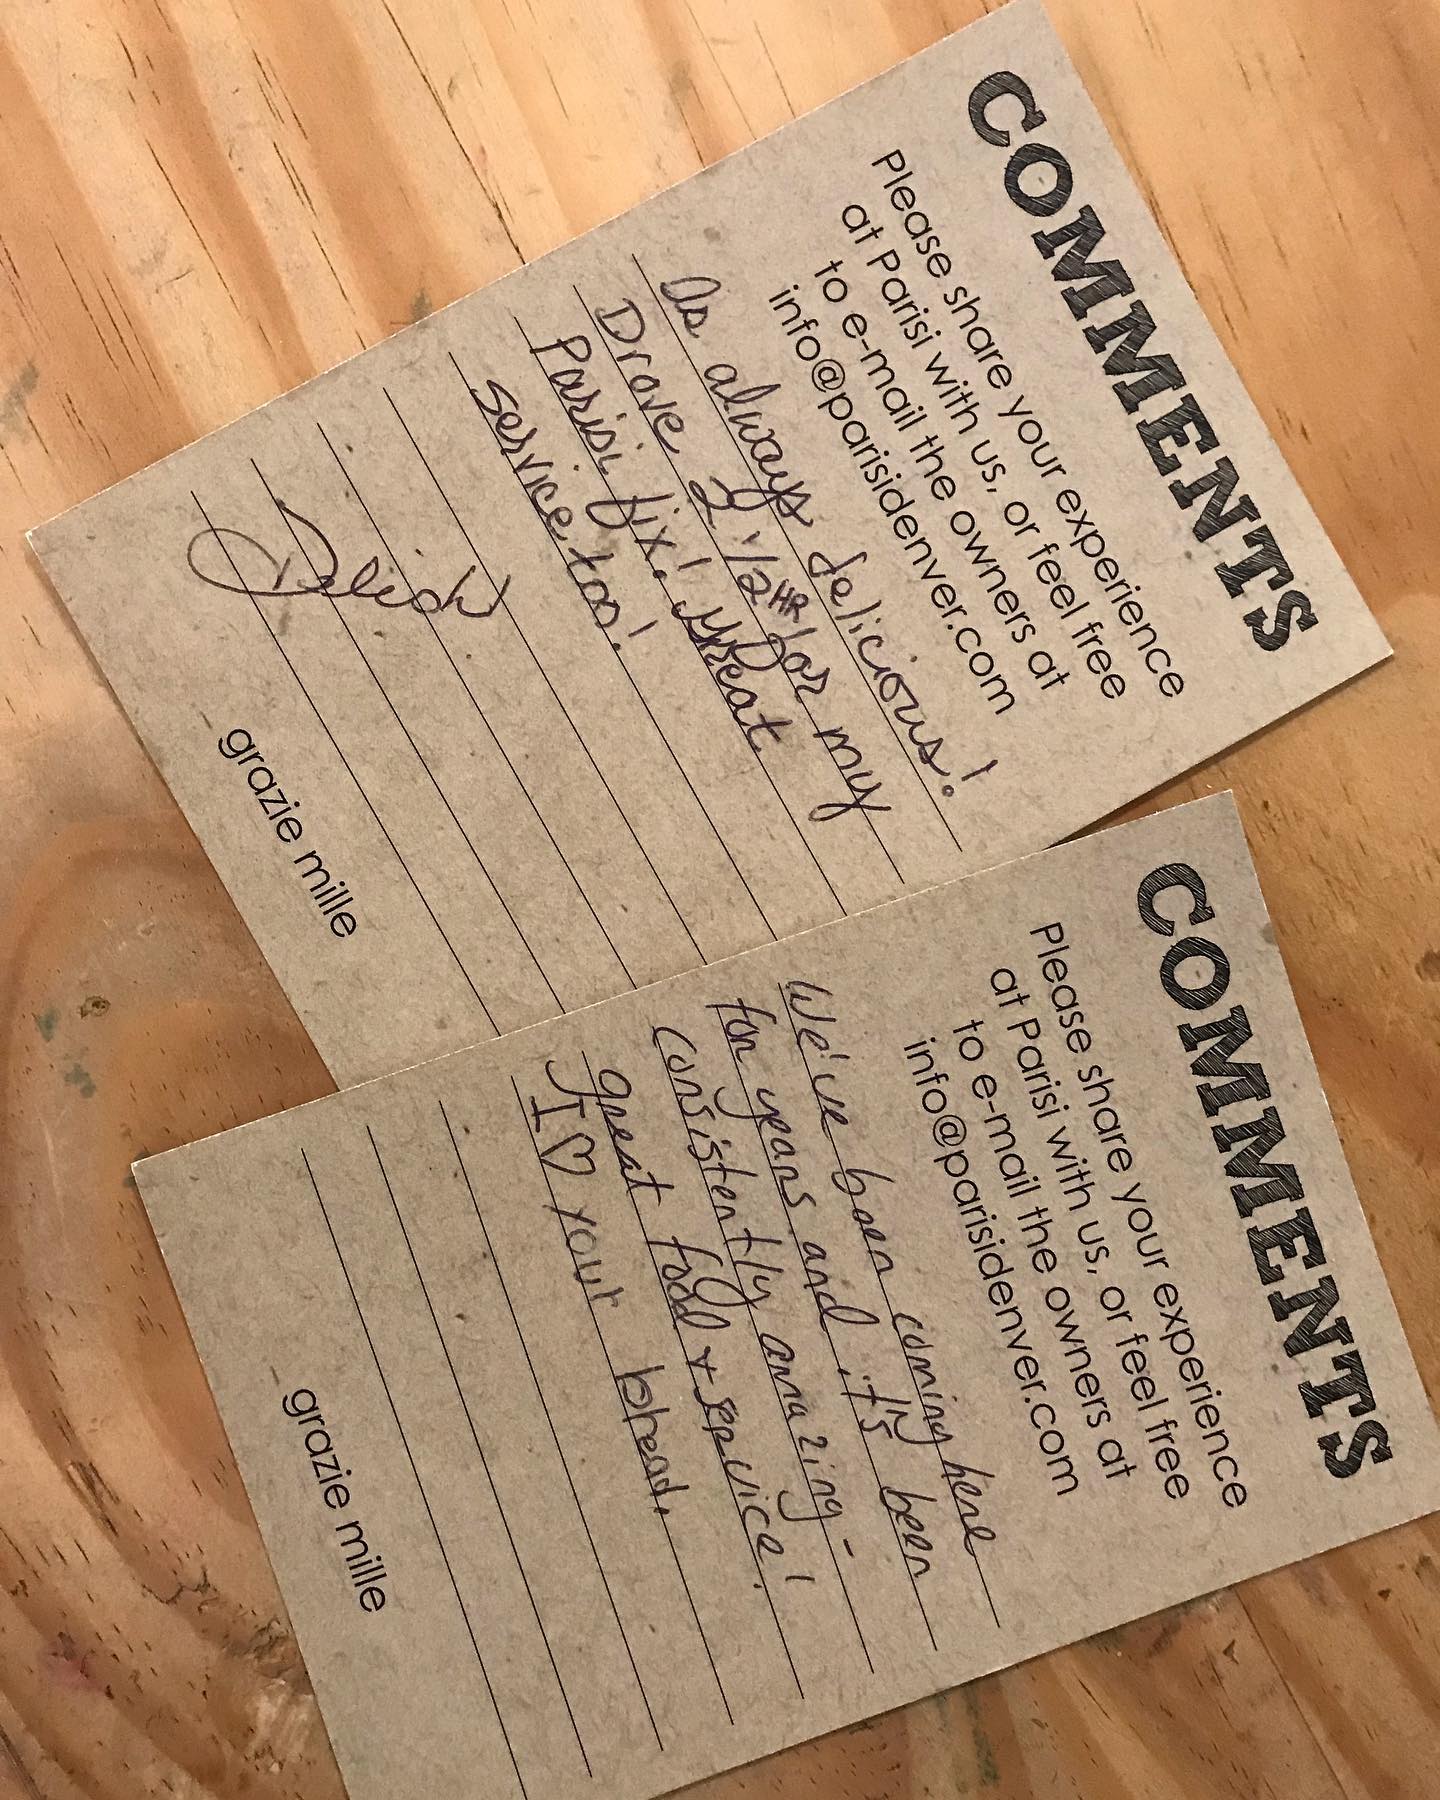 COMMENTS
Please share your experience
at Parisi with us, or feel free
to e-mail the owners at
info@parisidenver.com
As always delicious!
Drove 2 1/2 HR for my
Parisi fix! Great
service too!
grazie mille
COMMENTS
Please share your experience
at Parisi with us, or feel free
to e-mail the owners at
info@parisidenver.com
We've been coming here
for years and it's been
consistently amazing-
great food + service!
I ♡ your bread.
grazie mille